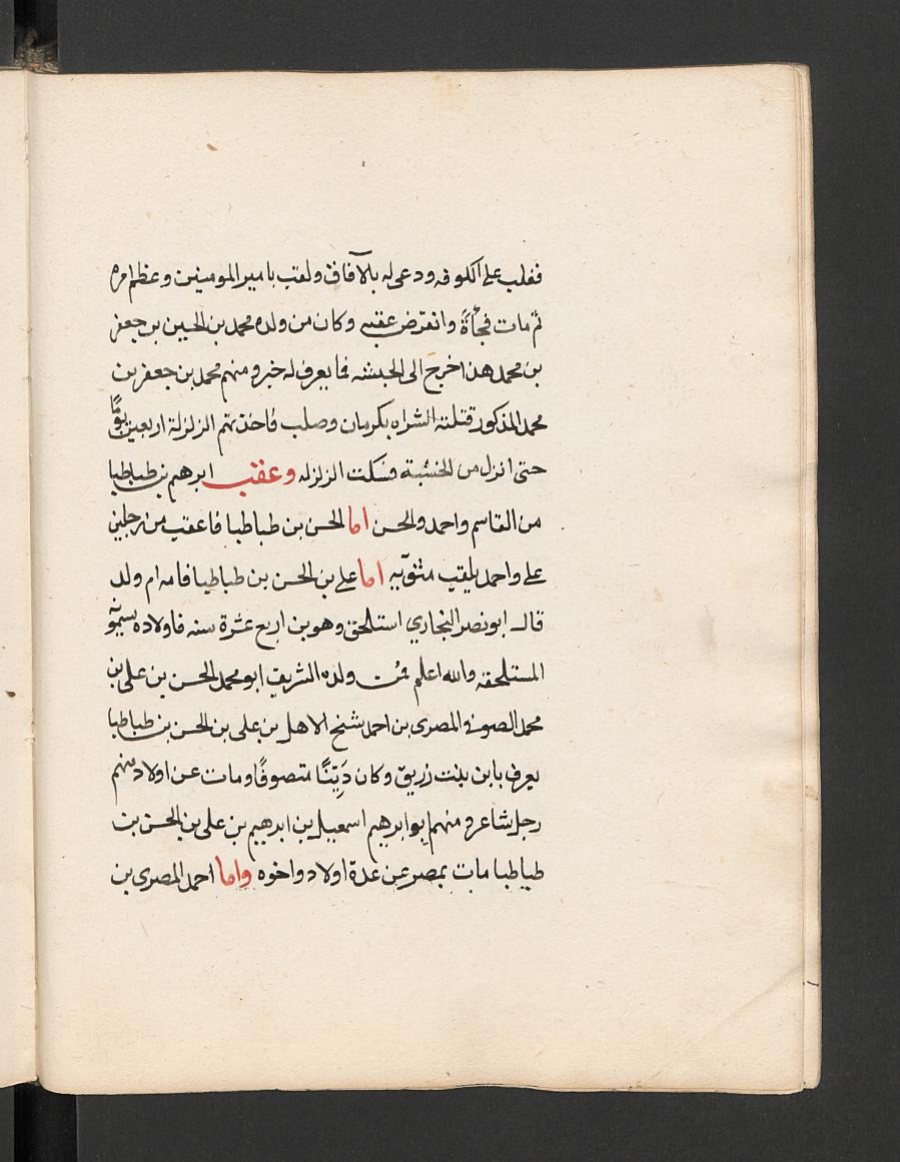 فغلب على الكوفه ودعى له بالآفاق ولقب بامير المومنين وعظم امره
ثم مات فجأةً وانقرض عقبه وكان من ولده محمد بن الحسين بن جعفر
بن محمد هذا خرج الى الحبشه فما يعرف له خبر ومنهم محمد بن جعفر بن
محمد المذكور قتلته الشراه بكرمان وصلب فاخذتهم الزلزلة اربعين يومًا
حتى انزل من الخشبة فسكنت الزلزله وعقب ابرهيم بن طباطبا
من القاسم واحمد والحسن اما الحسن بن طباطبا فاعقب من رجلين
على واحمد يلقب متويه اما على بن الحسن بن طباطبا فامه ام ولد
قال ابو نصر البخاري استلحق وهو بن اربع عشرة سنه فاولاده يسمونه
المستلحقه والله اعلم فمن ولده الشريف ابو محمد الحسن بن على بن
محمد الصوفى المصرى بن احمد شيخ الاهل بن على بن الحسن بن طباطبا
يعرف بابن بنت زريق وكان دَيِّنًا متصوفًا ومات عن اولاد منهم
رجل شاعر ومنهم ابو ابرهيم اسمعيل بن ابرهيم بن على بن الحسن بن
طباطبا مات بمصر عن عدة اولاد واخوه واما احمد المصرى بن